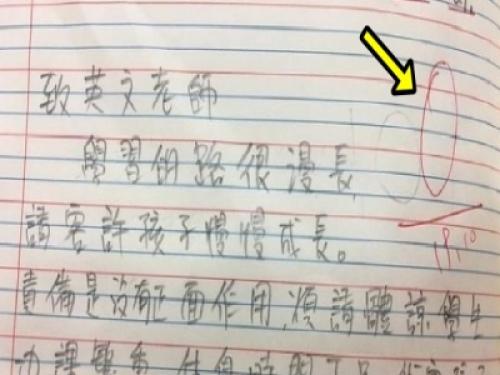 致英文老師
學習的路很漫長
請容許孩子慢慢成長。
責備是沒有正面作用,煩請體諒學生
功課繁重
19/10